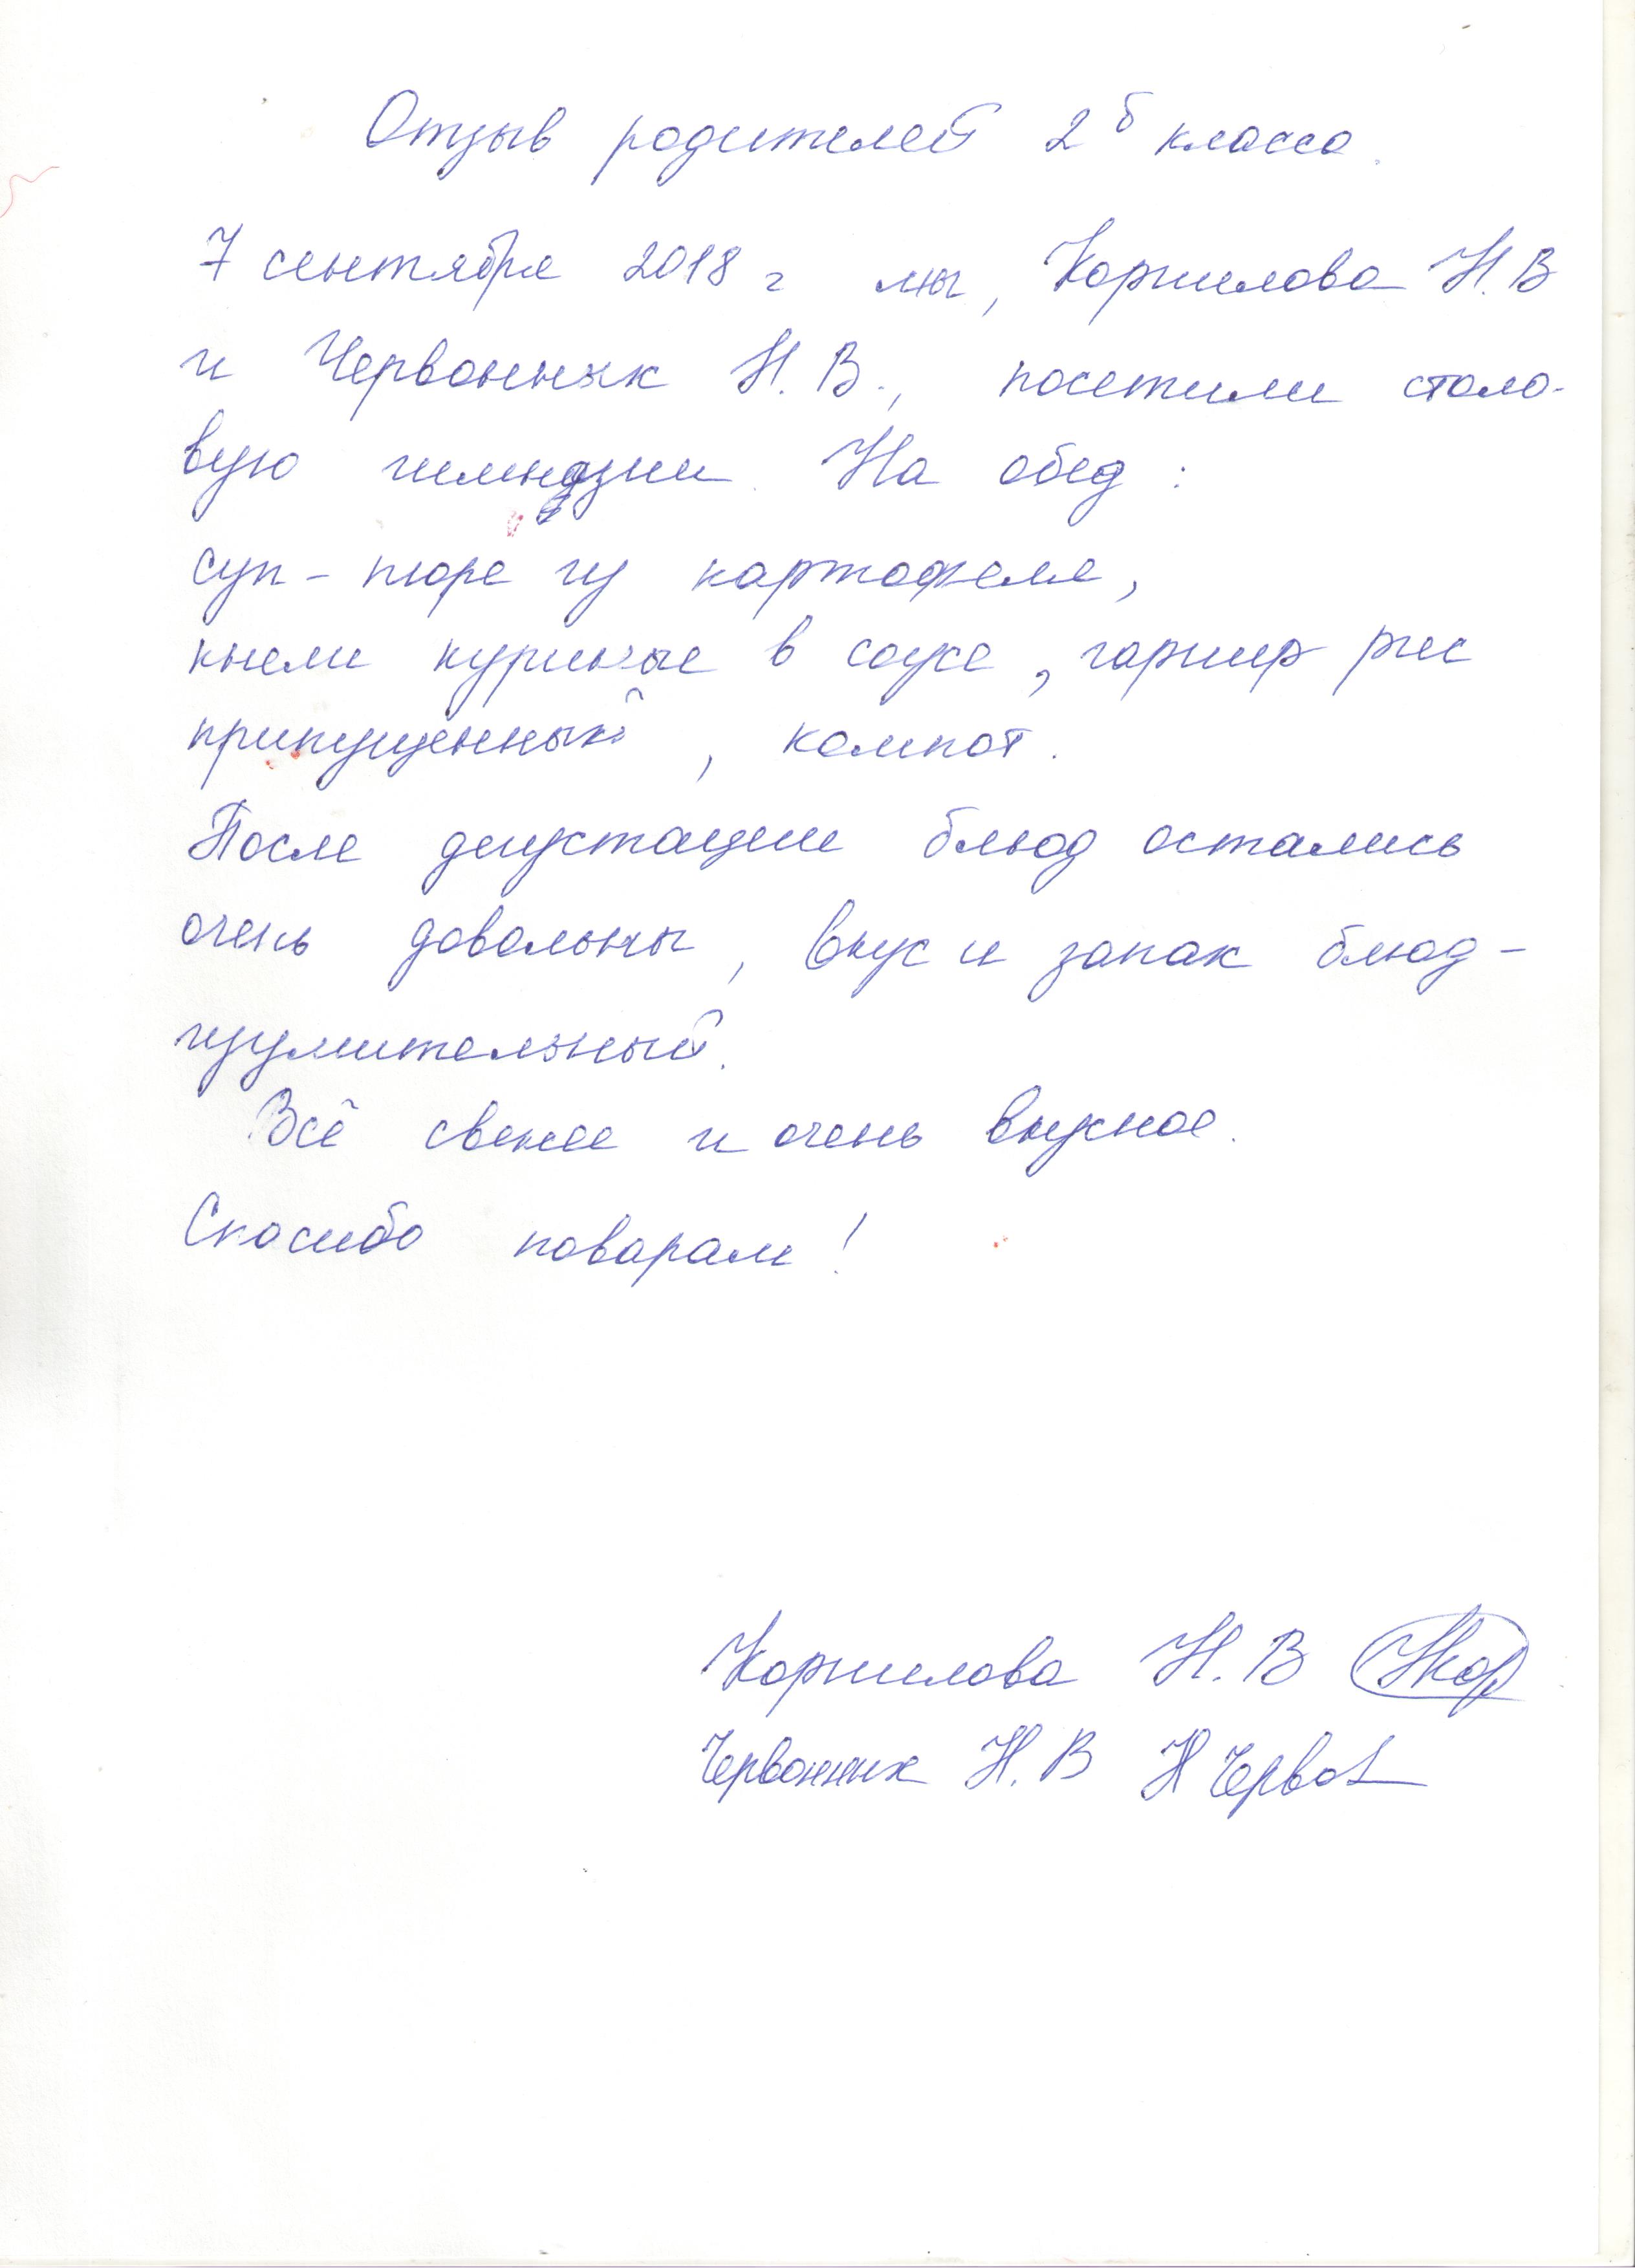 Отзыв родителей 2б класса.
7 сентября 2018 г мы, Корнилова Н.В
и Червонник Н.В., посетили столо-
вую гимназии. На обед:
суп-пюре из картофеля,
кнели куриные в соусе, гарнир рис
припущенный, компот.
После дегустации блюд остались
очень довольны, вкус и запах блюд -
изумительный.
Всё свежее и очень вкусное.
Спасибо поварам!
Корнилова Н.В НКор
Червонник Н.В НЧерво